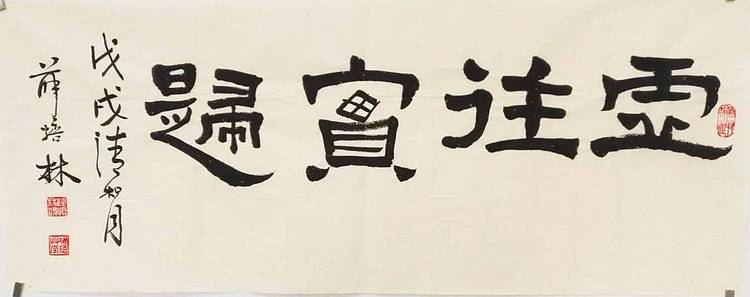 虚往實歸
戊戌清和月
薛培林